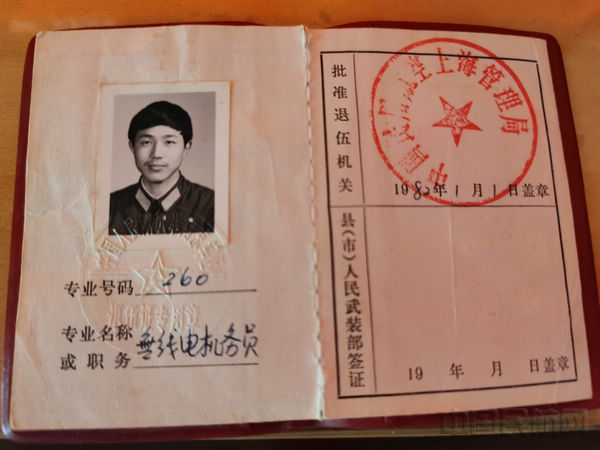 专业号码 260
专业名称
或职务 無线电机务员
批准退伍机关
上海管理局
1980年1月1日盖章
县(市)人民武装部签证
19 年 月 日盖章
中国民航网